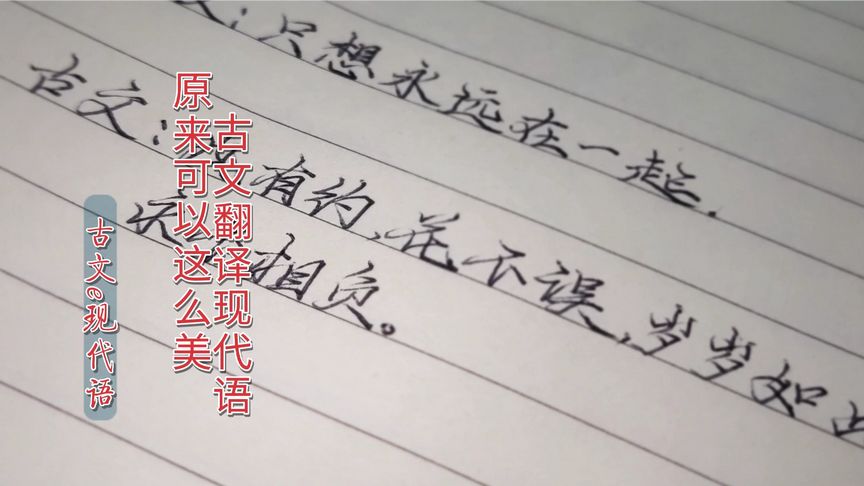 ：只想永远在一起.
古文：没有约,花不误,岁岁如
相负。
古文翻译现代语
原来可以这么美
古文の现代语